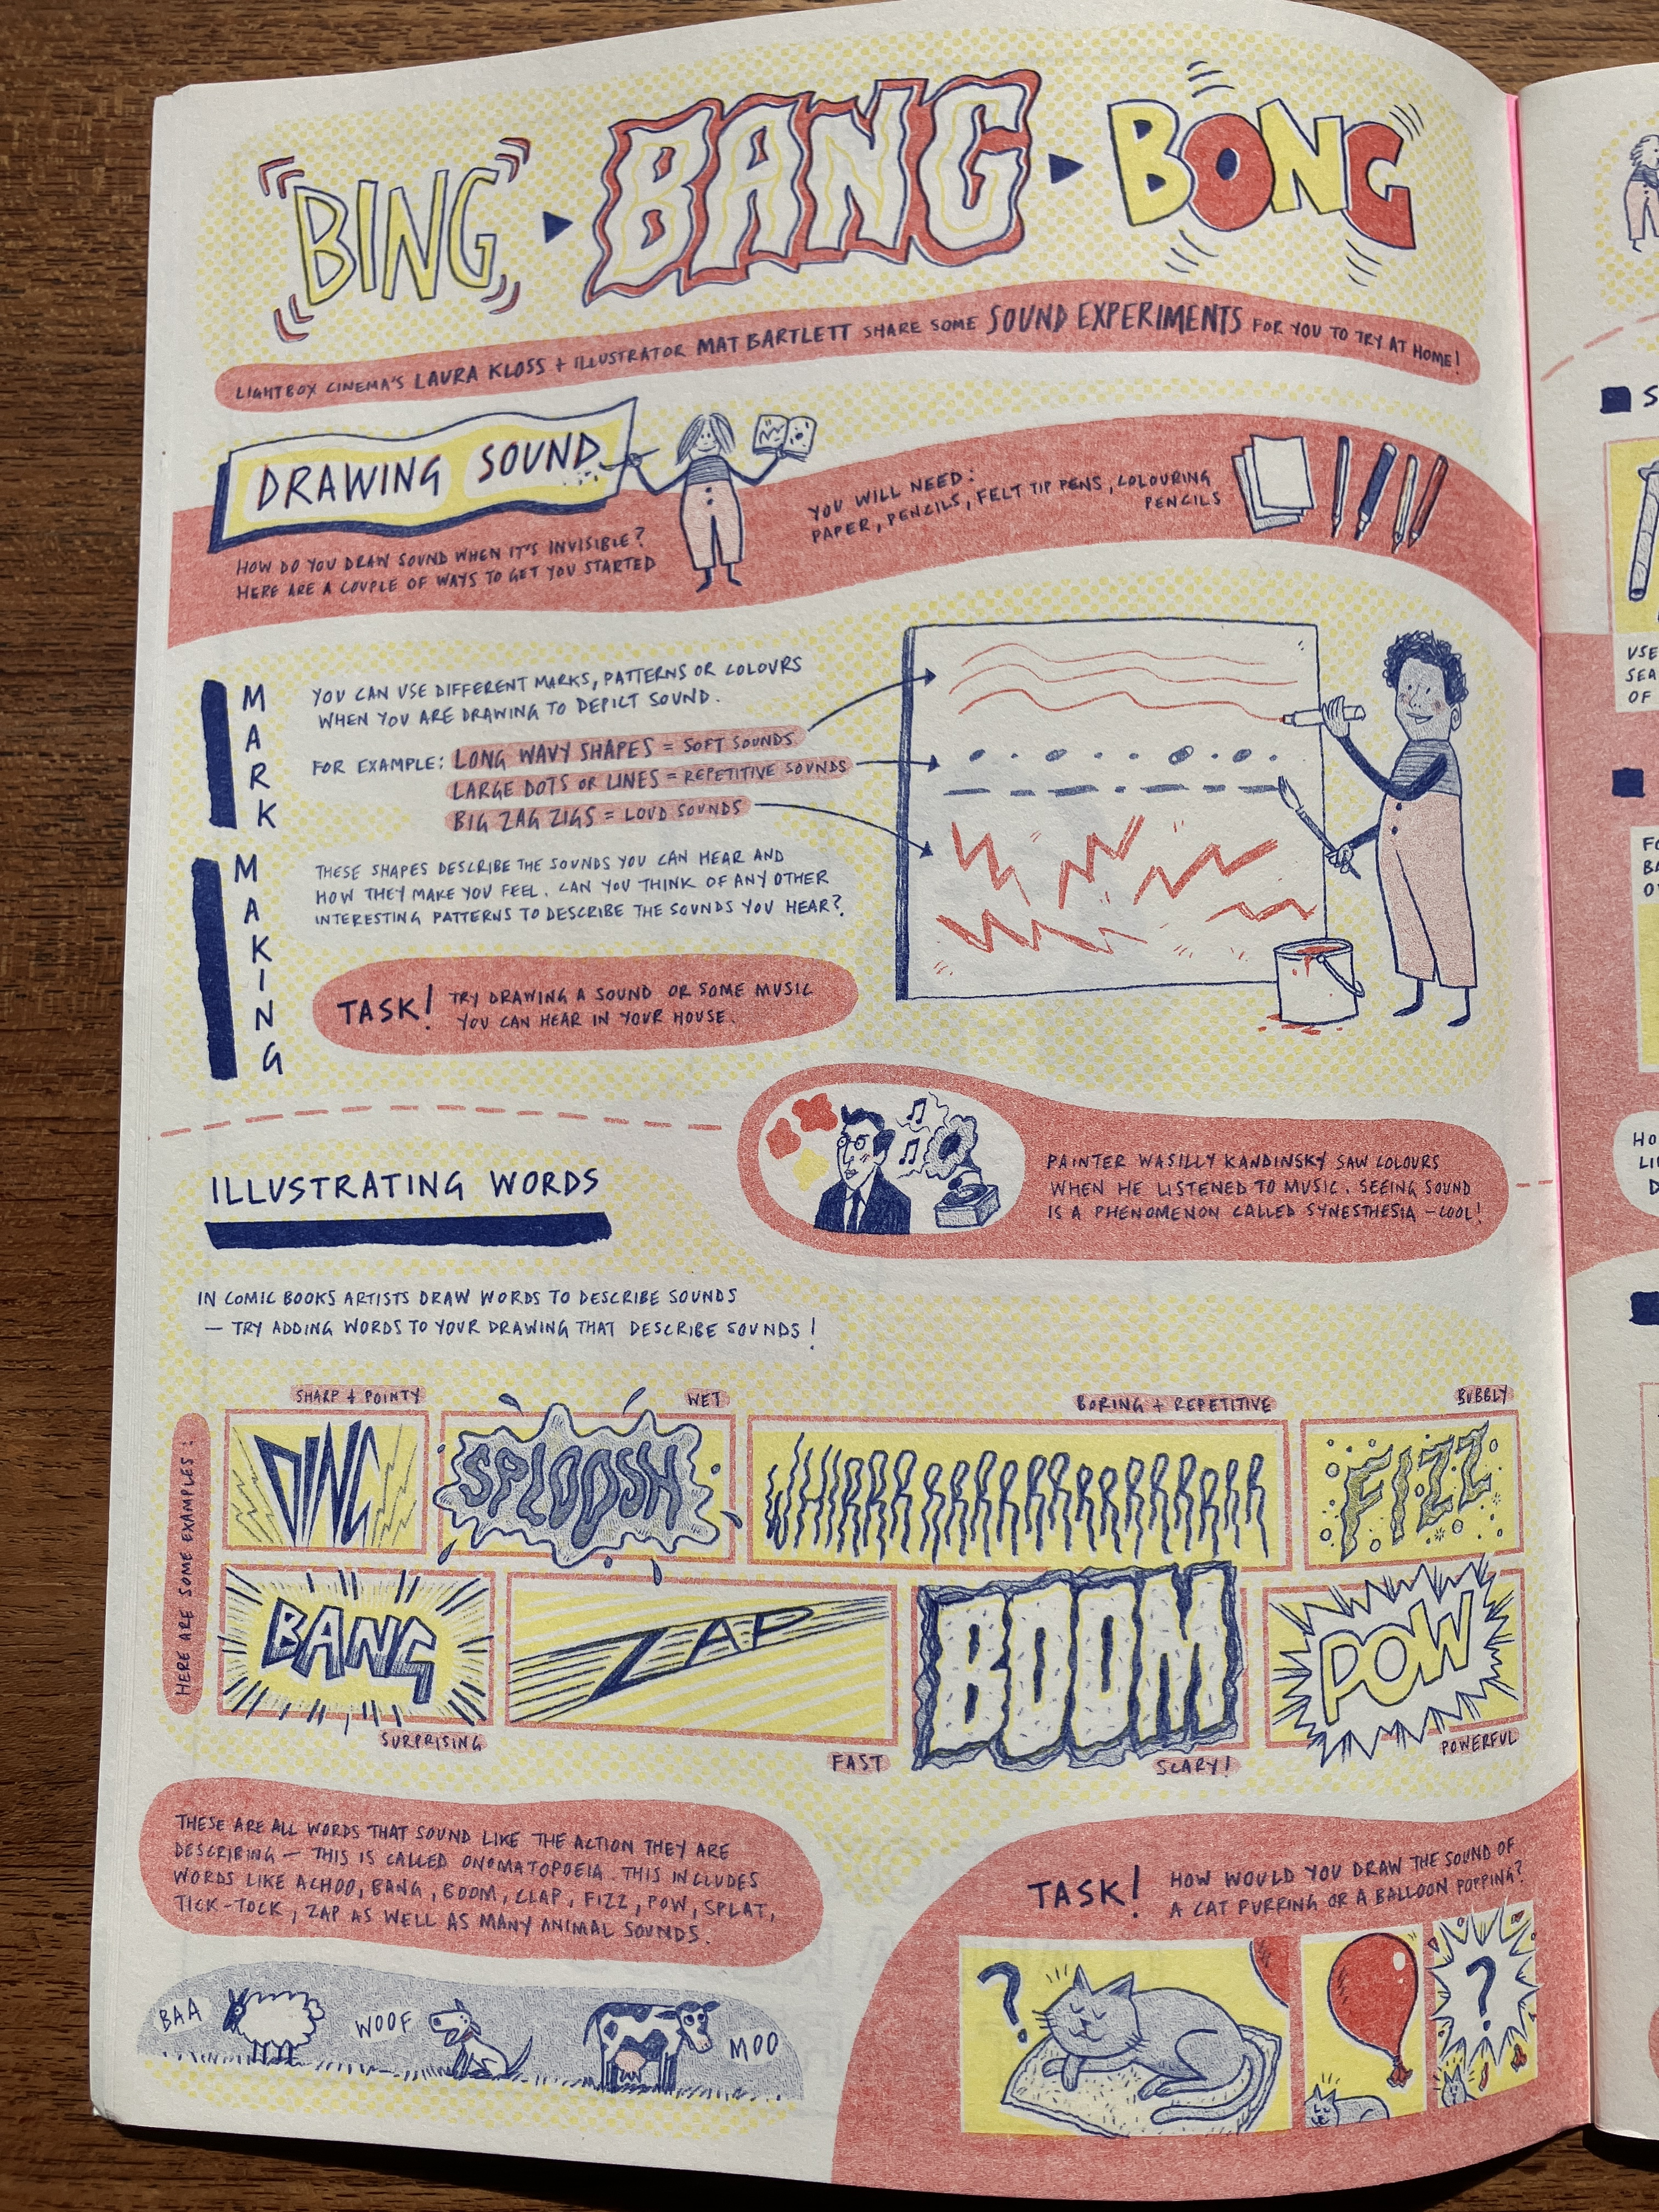 BING BANG BONG
LIGHTBOX CINEMA'S LAURA KLOSS + ILLUSTRATOR MAT BARTLETT SHARE SOME SOUND EXPERIMENTS FOR YOU TO TRY AT HOME!
DRAWING SOUND
HOW DO YOU DRAW SOUND WHEN IT'S INVISIBLE?
HERE ARE A COUPLE OF WAYS TO GET YOU STARTED
YOU WILL NEED:
PAPER, PENCILS, FELT TIP PENS, COLOURING
PENCILS
MARK MAKING
YOU CAN USE DIFFERENT MARKS, PATTERNS OR COLOURS
WHEN YOU ARE DRAWING TO DEPICT SOUND.
FOR EXAMPLE: LONG WAVY SHAPES = SOFT SOUNDS
LARGE DOTS OR LINES = REPETITIVE SOUNDS
BIG ZAG ZIGS = LOUD SOUNDS
THESE SHAPES DESCRIBE THE SOUNDS YOU CAN HEAR AND
HOW THEY MAKE YOU FEEL. CAN YOU THINK OF ANY OTHER
INTERESTING PATTERNS TO DESCRIBE THE SOUNDS YOU HEAR?
TASK! TRY DRAWING A SOUND OR SOME MUSIC
YOU CAN HEAR IN YOUR HOUSE.
PAINTER WASILLY KANDINSKY SAW COLOURS
WHEN HE LISTENED TO MUSIC. SEEING SOUND
IS A PHENOMENON CALLED SYNESTHESIA - COOL!
ILLUSTRATING WORDS
IN COMIC BOOKS ARTISTS DRAW WORDS TO DESCRIBE SOUNDS
- TRY ADDING WORDS TO YOUR DRAWING THAT DESCRIBE SOUNDS!
HERE ARE SOME EXAMPLES:
SHARP + POINTY
WET
BORING + REPETITIVE
BUBBLY
DING
SPLOOSH
WHIRRRRRRRRRRRRRRRR
FIZZ
BANG
ZAP
BOOM
POW
SURPRISING
FAST
SCARY!
POWERFUL
THESE ARE ALL WORDS THAT SOUND LIKE THE ACTION THEY ARE
DESCRIBING - THIS IS CALLED ONOMATOPOEIA. THIS INCLUDES
WORDS LIKE ACHOO, BANG, BOOM, CLAP, FIZZ, POW, SPLAT,
TICK-TOCK, ZAP AS WELL AS MANY ANIMAL SOUNDS.
BAA
WOOF
MOO
TASK! HOW WOULD YOU DRAW THE SOUND OF
A CAT PURRING OR A BALLOON POPPING?
?
?
USE
SEA
OF